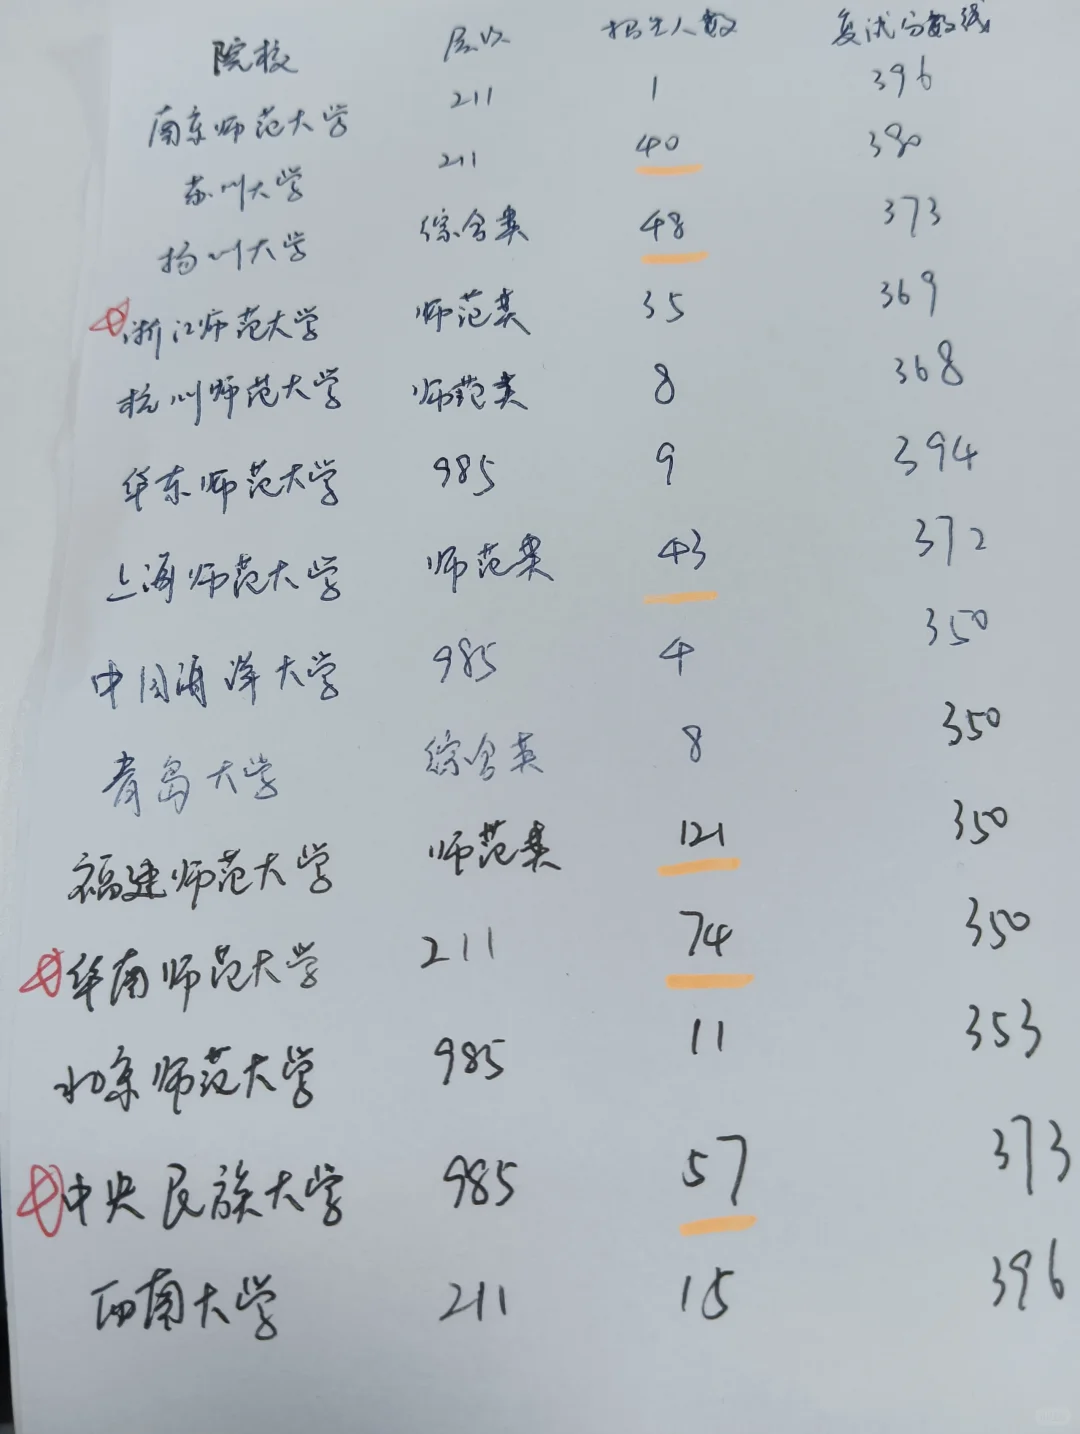 院校 层次 招生人数 复试分数线
南京师范大学 211 1 396
苏州大学 211 40 380
扬州大学 综合类 48 373
浙江师范大学 师范类 35 369
杭州师范大学 师范类 8 368
华东师范大学 985 9 394
上海师范大学 师范类 43 372
中国海洋大学 985 4 350
青岛大学 综合类 8 350
福建师范大学 师范类 121 350
华南师范大学 211 74 350
北京师范大学 985 11 353
中央民族大学 985 57 373
西南大学 211 15 396